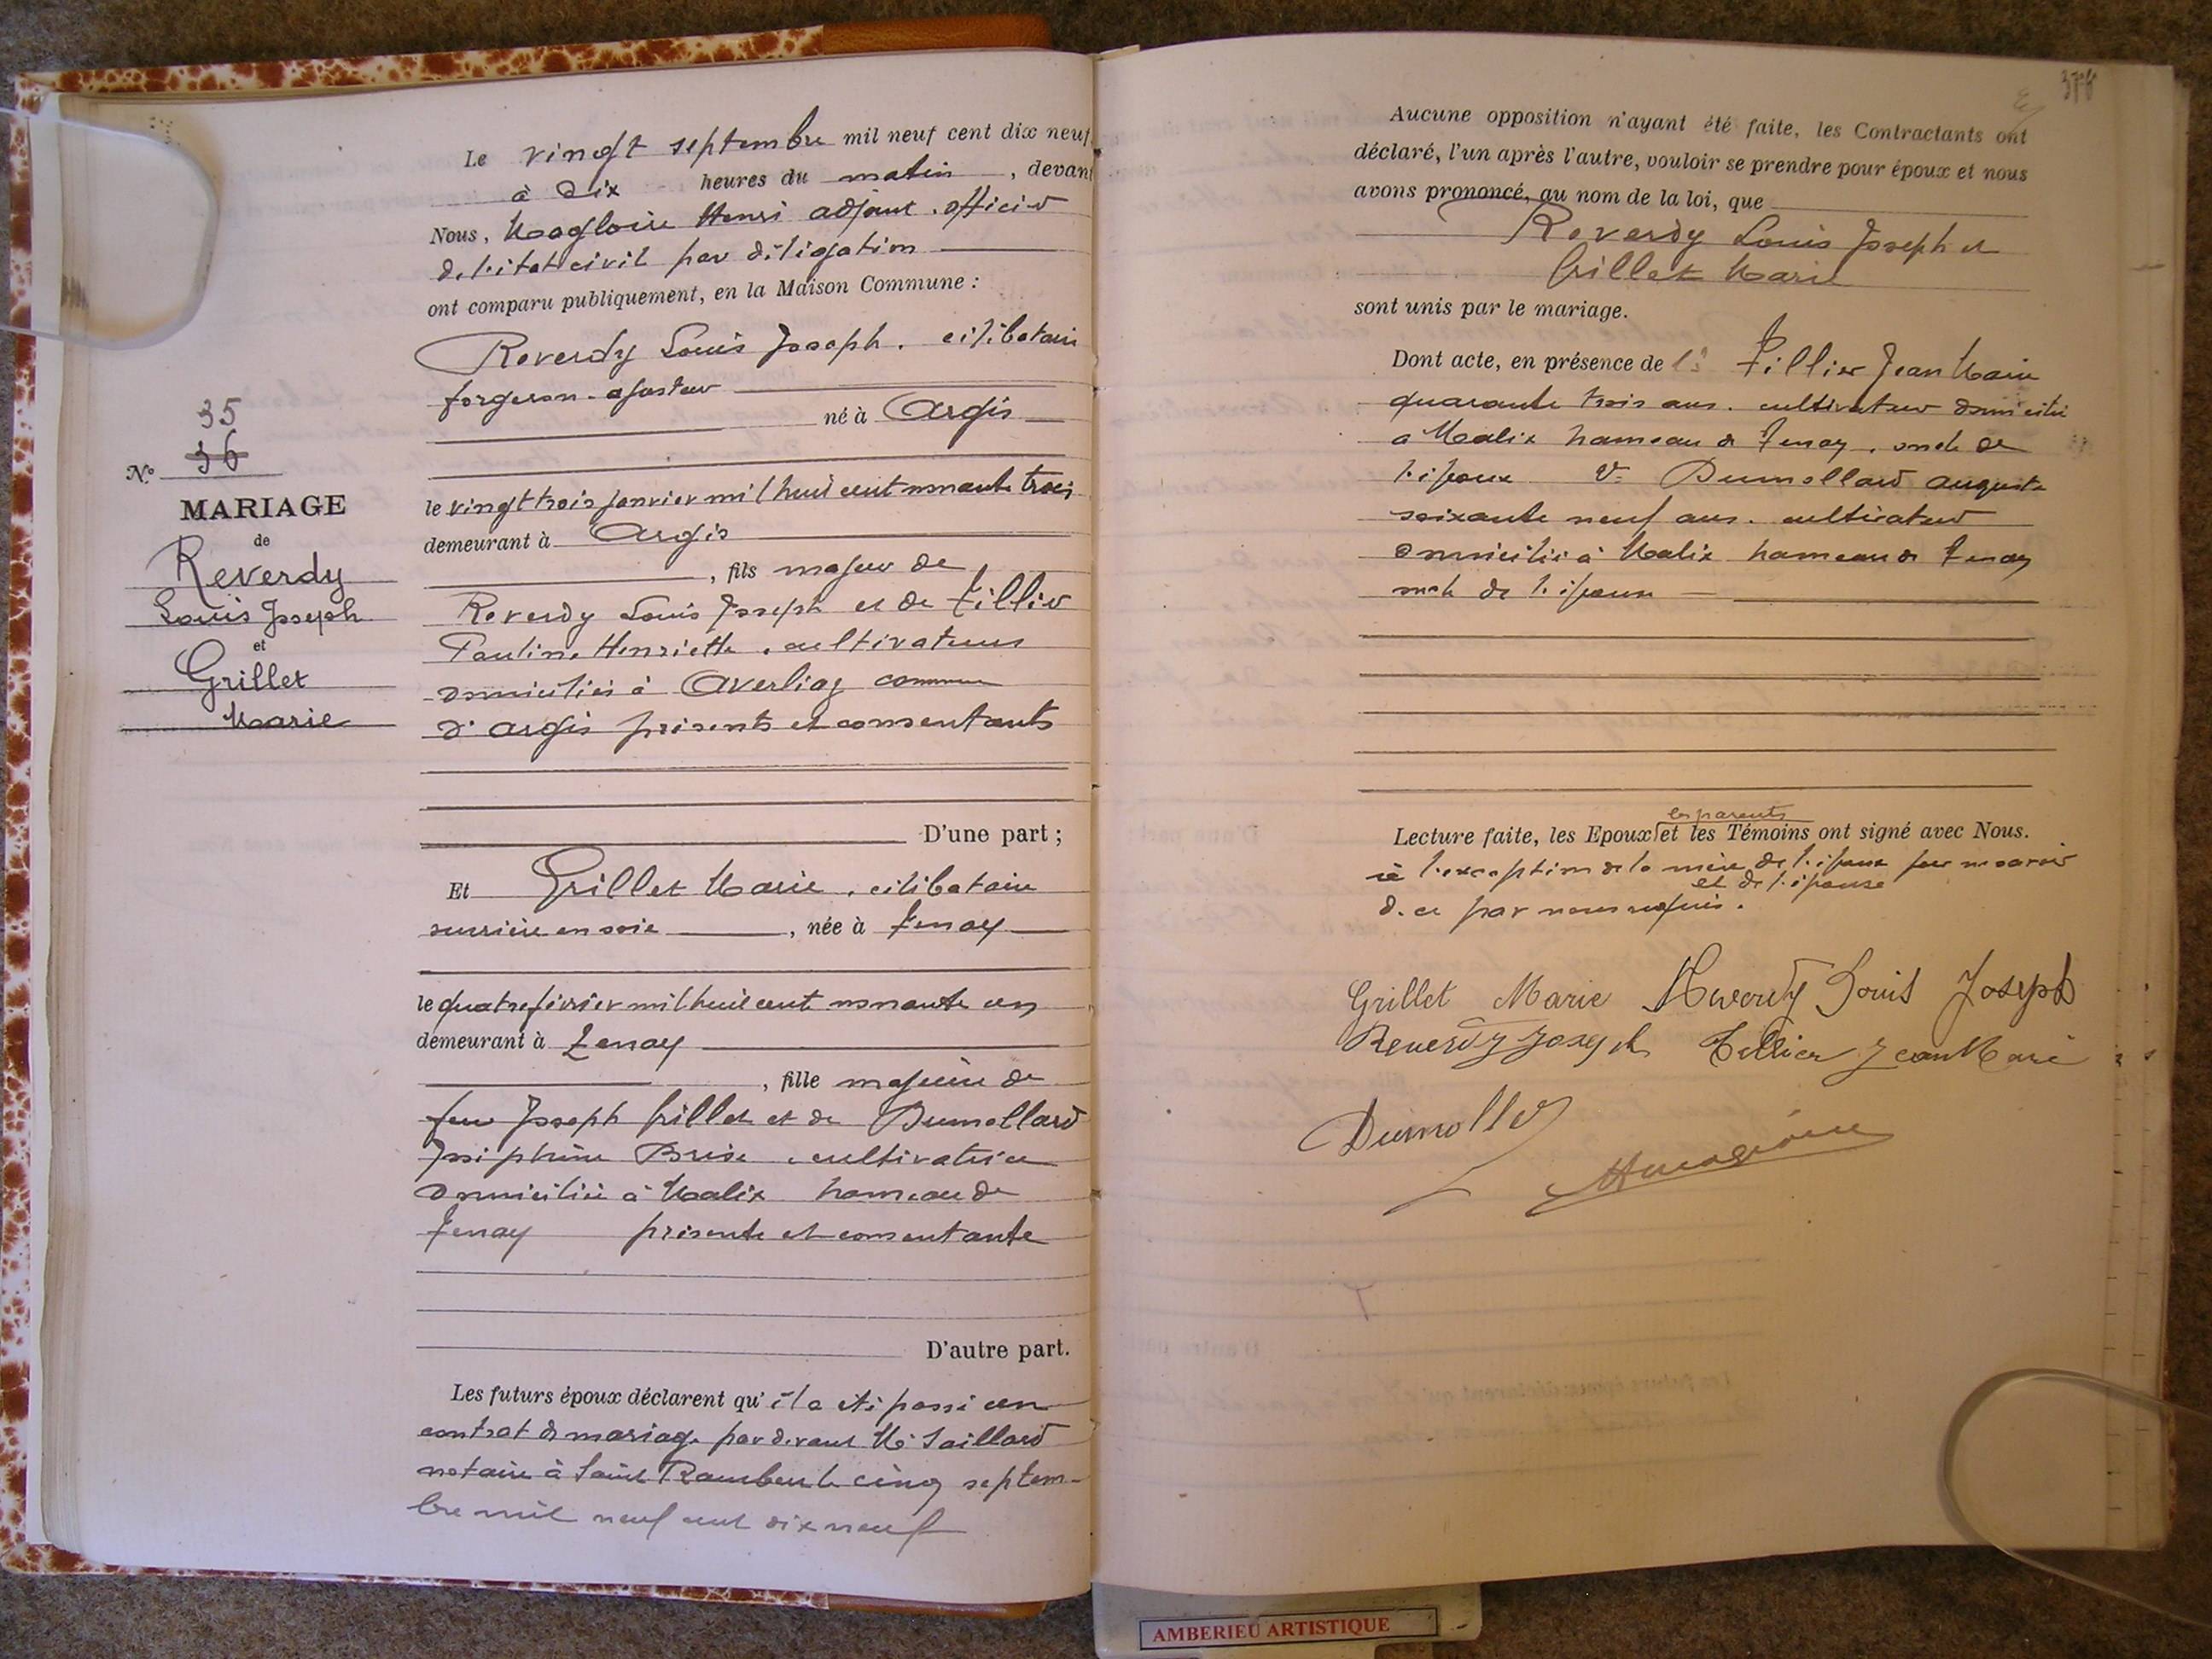 Le vingt septembre mil neuf cent dix neuf
à Dix heures du matin, devant
Nous, Magloire Henri adjoint officier
de l'état civil par délégation
ont comparu publiquement, en la Maison Commune :
Reverdy Louis Joseph, célibataire
forgeron-ajusteur
né à Argis
le vingt trois janvier mil huit cent nonante trois
demeurant à Argis
, fils majeur de
Reverdy Louis Joseph et de Tillier
Pauline Henriette, cultivateurs
domiciliés à Averliaz commune
d'Argis présents et consentants
D'une part ;
Et Grillet Marie, célibataire
ouvrière en soie, née à Tenay
le quatre février mil huit cent nonante un
demeurant à Tenay
, fille majeure de
feu Joseph Grillet et de Dumollard
Joséphine Brise, cultivatrice
domiciliée à Malix hameau de
Tenay présente et consentante
D'autre part.
Les futurs époux déclarent qu'il a été passé un
contrat de mariage par devant Me Saillard
notaire à Saint Rambert le cinq septem-
bre mil neuf cent dix neuf
35
No 36
MARIAGE
de
Reverdy
Louis Joseph
et
Grillet
Marie
Aucune opposition n'ayant été faite, les Contractants ont
déclaré, l'un après l'autre, vouloir se prendre pour époux et nous
avons prononcé, au nom de la loi, que
Reverdy Louis Joseph et
Grillet Marie
sont unis par le mariage.
Dont acte, en présence de Tillier Jean Marie
quarante trois ans, cultivateur domicilié
à Malix hameau de Tenay, oncle de
l'époux Dumollard Auguste
soixante neuf ans, cultivateur
domicilié à Malix hameau de Tenay
oncle de l'épouse
les parents
Lecture faite, les Epoux et les Témoins ont signé avec Nous.
à l'exception de la mère de l'époux pour ne savoir
et de l'épouse
de ce par nous requis.
Grillet Marie Reverdy Louis Joseph
Reverdy Joseph Tillier Jean Marie
Dumollard
HMagloire
AMBERIEU ARTISTIQUE